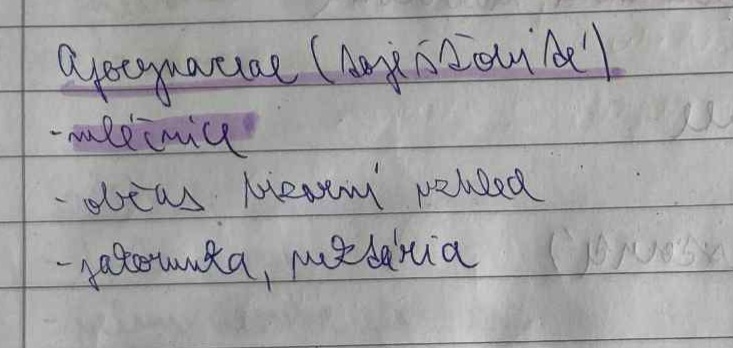 Apocynaceae (tojěšťovité)
- mléčnice
- občas bizarní vzhled
- pakorunka, nektária